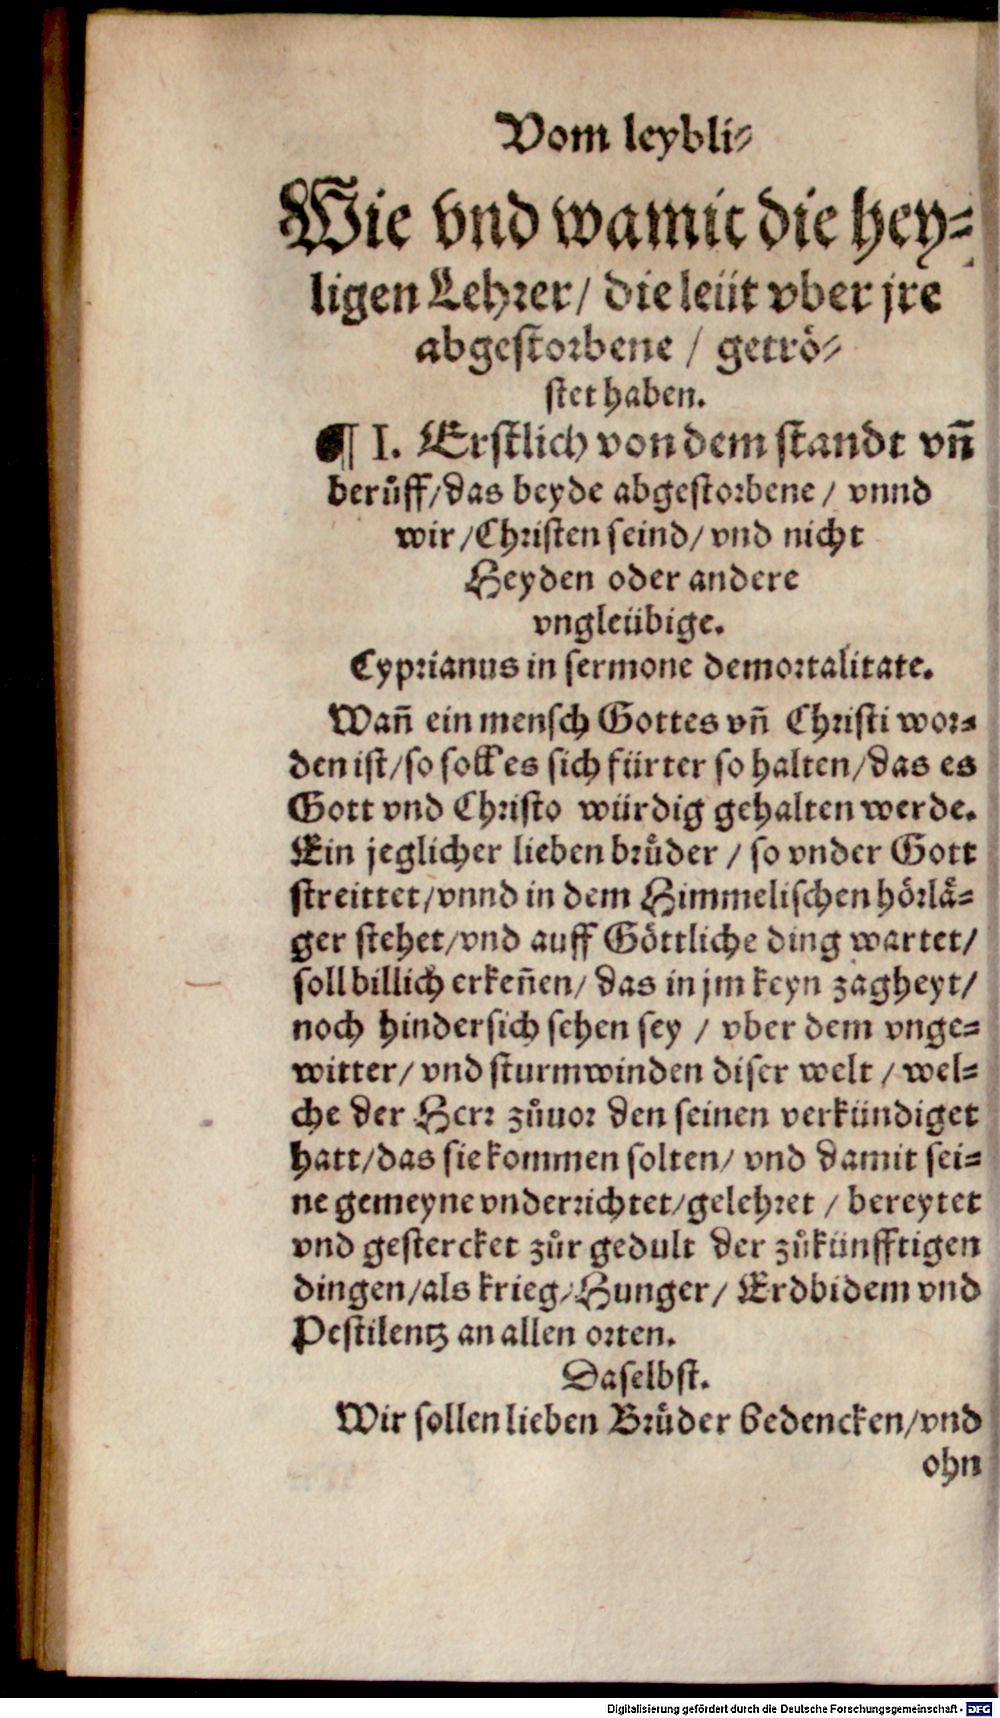 Vom leybli⸗
Wie vnd wamit die hey⸗
ligen Lehrer/ die leüt vber jre
abgestorbene / getrö⸗
stet haben.
¶ I. Erstlich von dem standt vn̄
berůff/das beyde abgestorbene / vnnd
wir /Christen seind/ vnd nicht
Heyden oder andere
vngleübige.
Cyprianus in sermone demortalitate.
Wan̄ ein mensch Gottes vn̄ Christi wor⸗
den ist/so soll es sich fürter so halten/das es
Gott vnd Christo würdig gehalten werde.
Ein jeglicher lieben brůder / so vnder Gott
streittet/vnnd in dem Himmelischen hörlä⸗
ger stehet/vnd auff Göttliche ding wartet/
soll billich erken̄en/ das in jm keyn zagheyt/
noch hindersich sehen sey / vber dem vnge⸗
witter/ vnd sturmwinden diser welt / wel⸗
che der Herr zůuor den seinen verkündiget
hatt/das sie kommen solten/ vnd damit sei⸗
ne gemeyne vnderrichtet/gelehret / bereytet
vnd gestercket zůr gedult der zůkünfftigen
dingen/als krieg/Hunger/ Erdbidem vnd
Pestilentz an allen orten.
Daselbst.
Wir sollen lieben Brůder bedencken/vnd
ohn
Digitalisierung gefördert durch die Deutsche Forschungsgemeinschaft - DFG